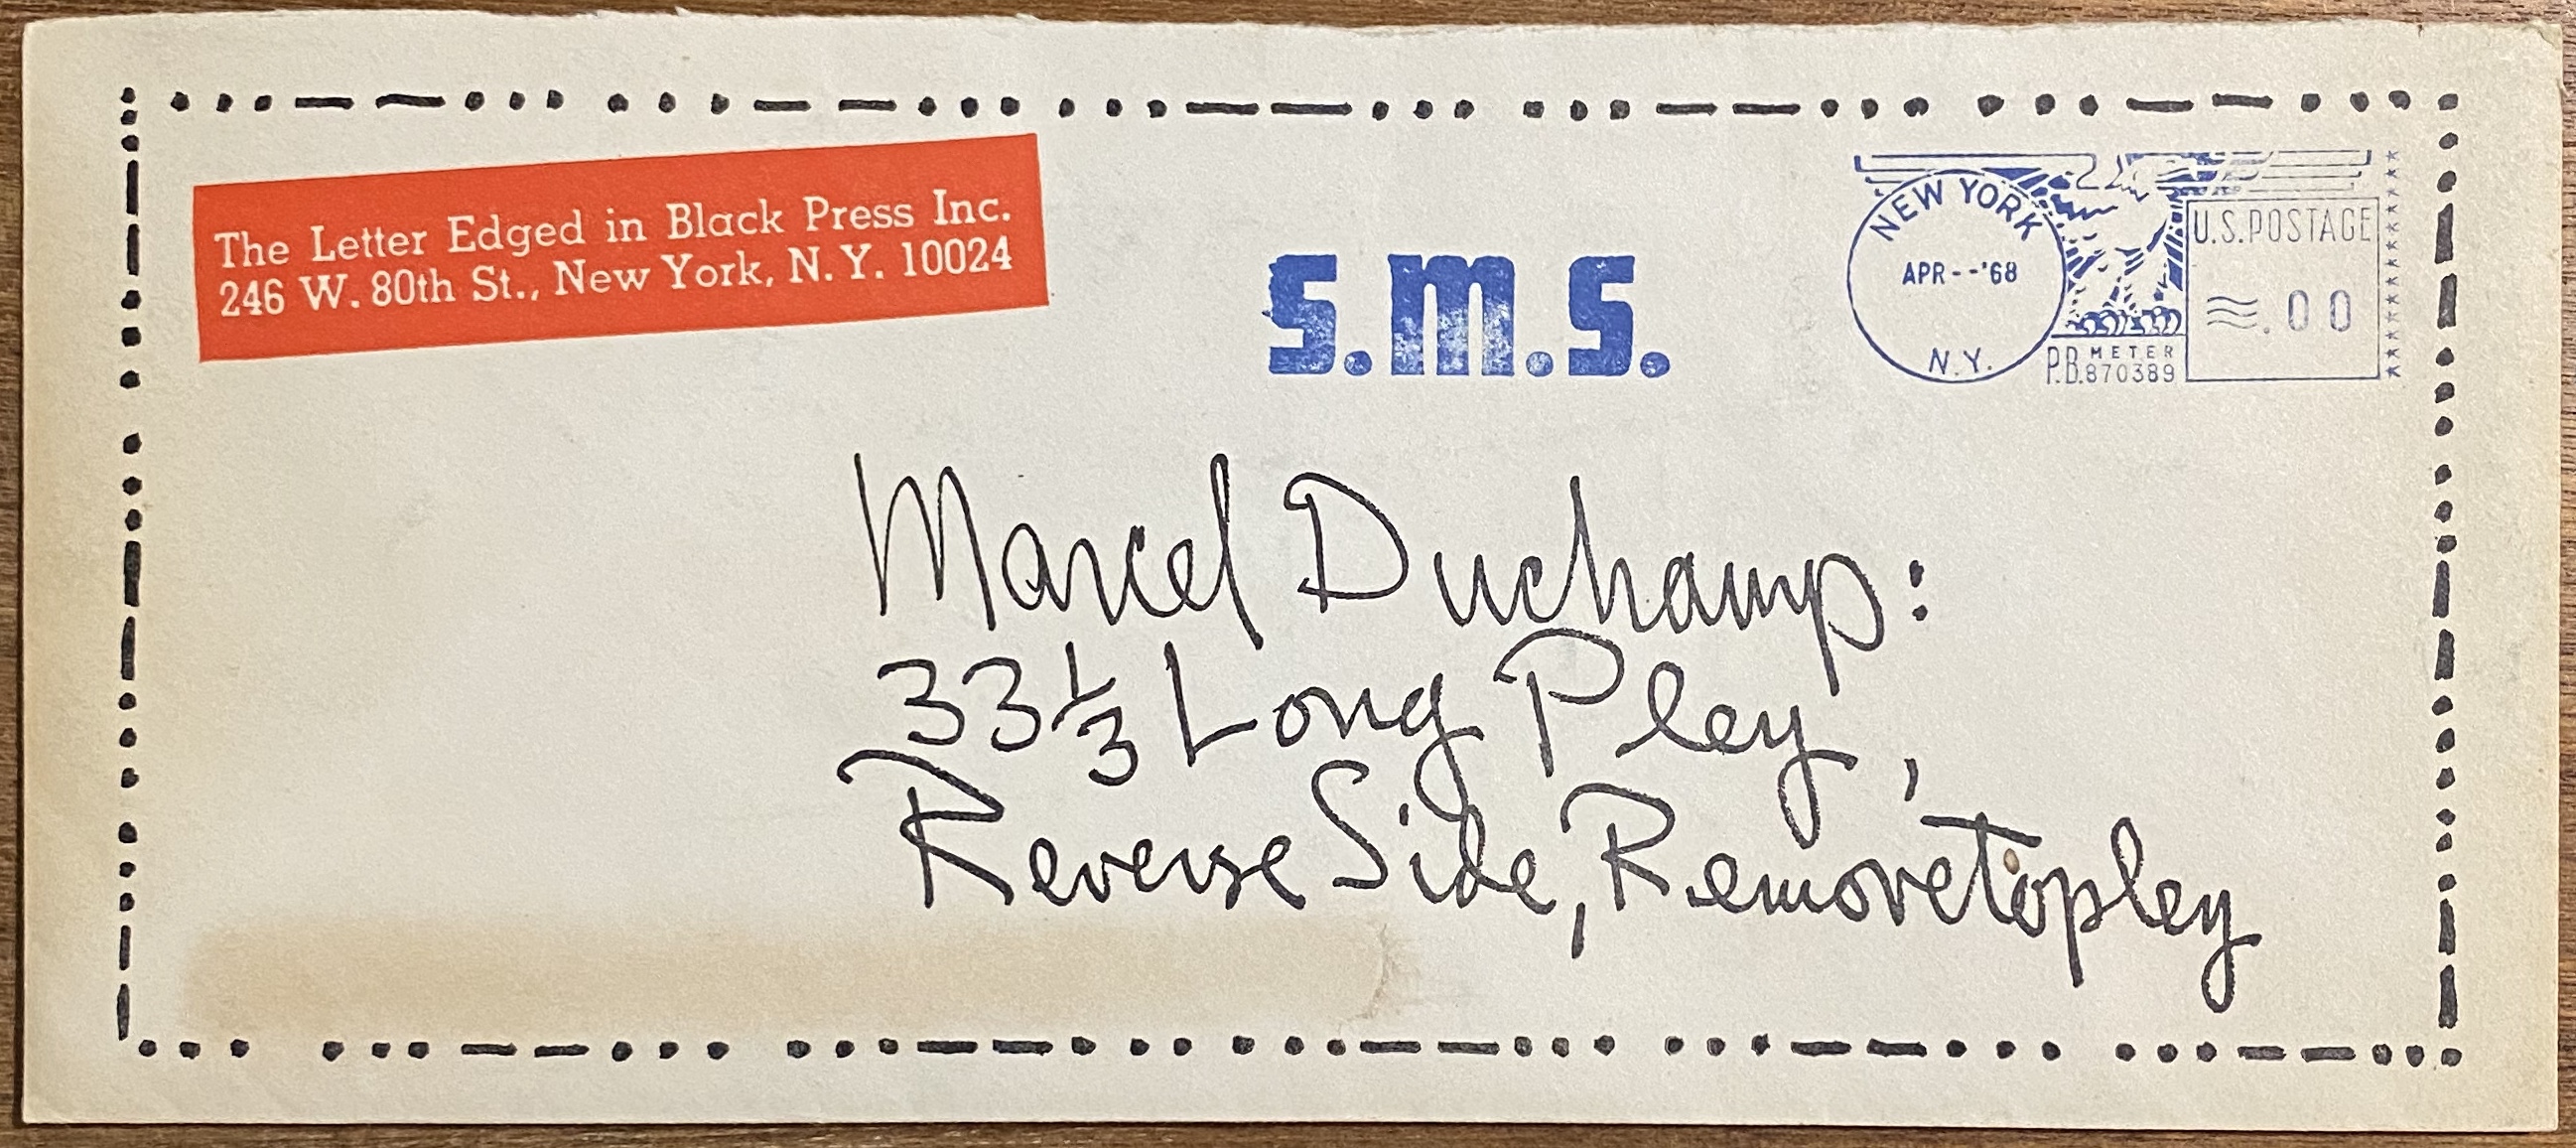 The Letter Edged in Black Press Inc.
246 W. 80th St., New York, N.Y. 10024
S.M.S.
NEW YORK
APR--'68
N.Y.
P.B. METER
870389
U.S. POSTAGE
.00
Marcel Duchamp:
33 1/3 Long Pley,
Reverse Side, Remove to pley